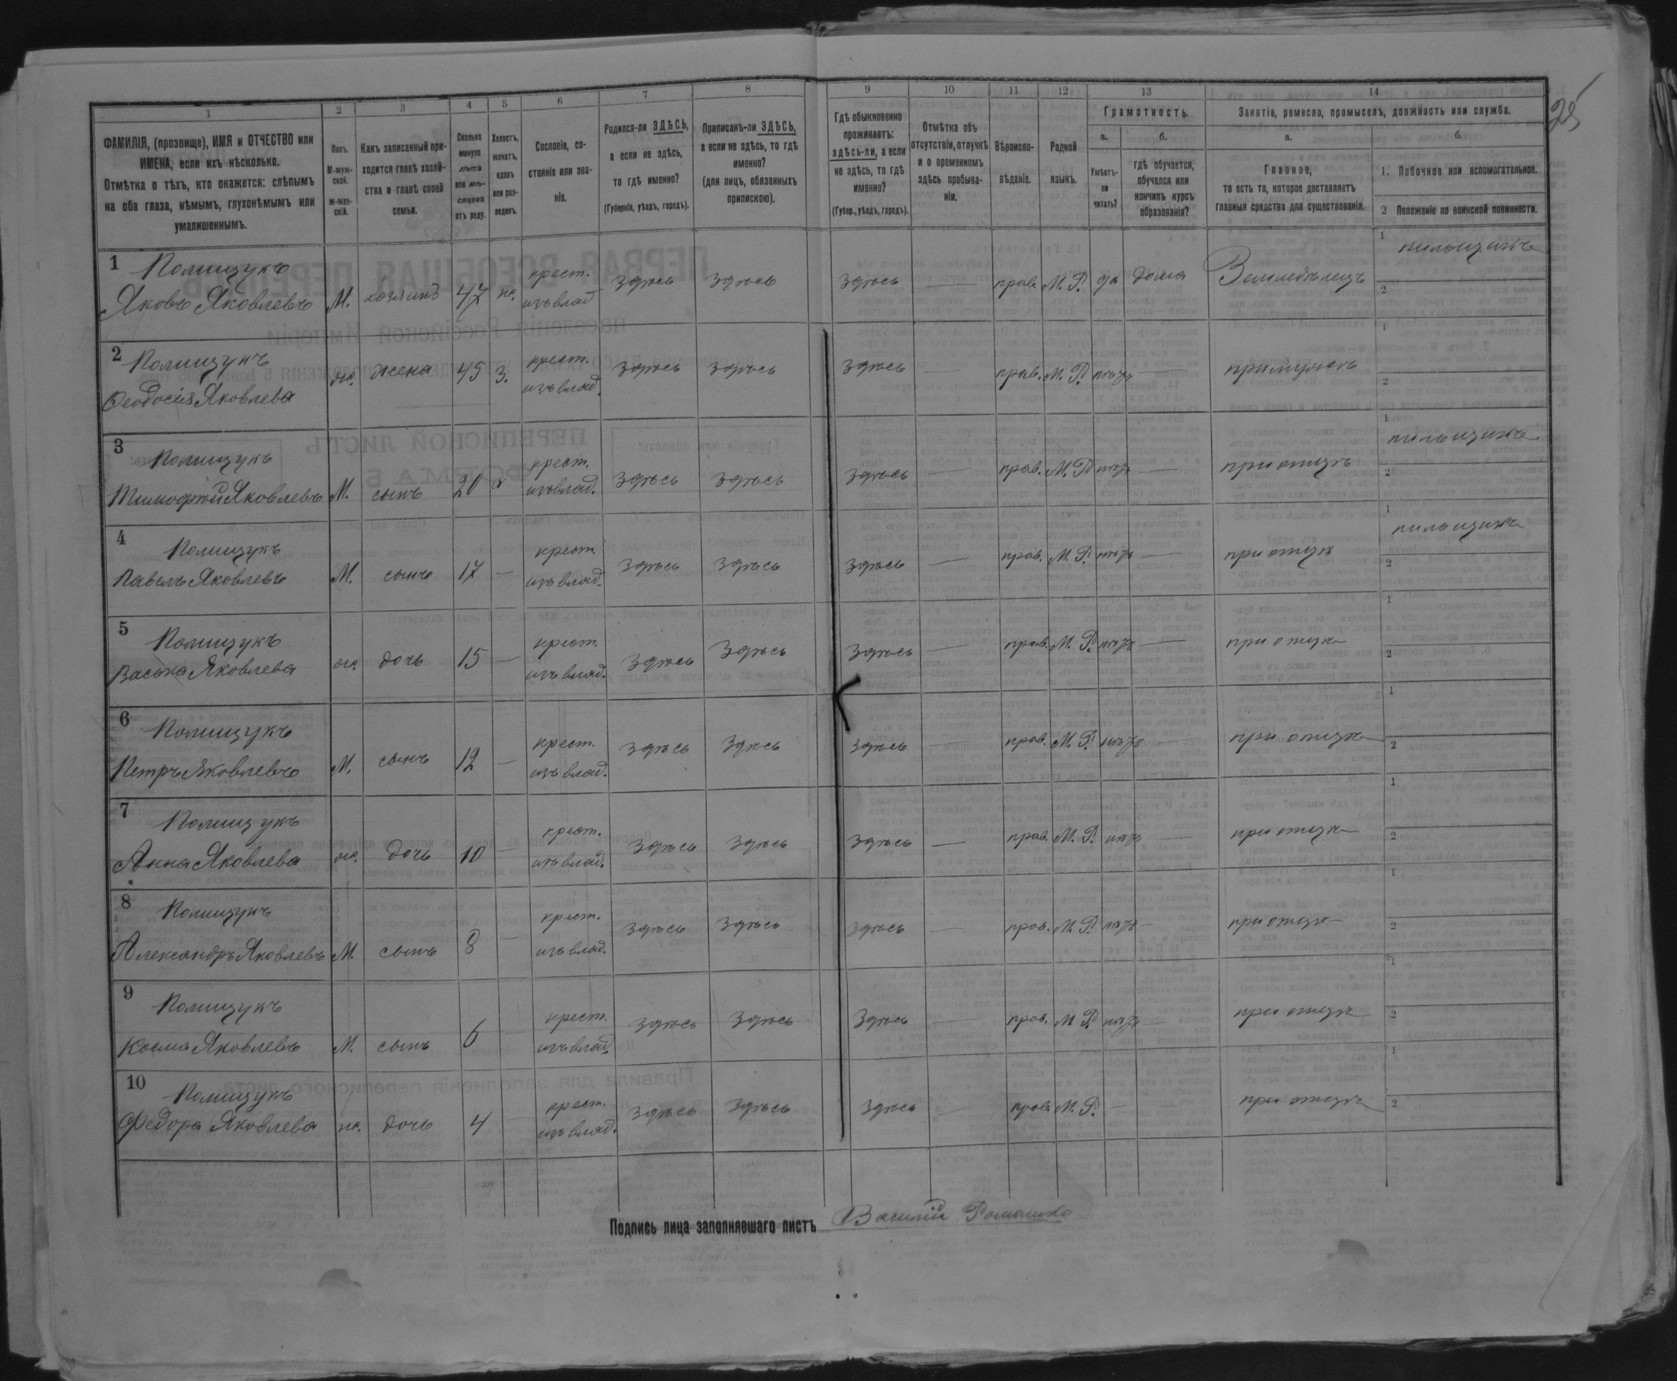 25
1 2 3 4 5 6 7 8 9 10 11 12 13 14
ФАМИЛІЯ, (прозвище), ИМЯ и ОТЧЕСТВО или ИМЕНА, если ихъ нѣсколько.
Отмѣтка о тѣхъ, кто окажется: слѣпымъ на оба глаза, нѣмымъ, глухонѣмымъ или умалишеннымъ.
Полъ.
М-мужской.
Ж-женскій.
Какъ записанный приходится главѣ хозяйства и главѣ своей семьи.
Сколько минуло лѣтъ или мѣсяцевъ отъ роду.
Холостъ, женатъ, вдовъ или разведенъ.
Сословіе, состояніе или званіе.
Родился-ли ЗДѢСЬ, а если не здѣсь, то гдѣ именно?
(Губернія, уѣздъ, городъ).
Приписанъ-ли ЗДѢСЬ, а если не здѣсь, то гдѣ именно?
(для лицъ, обязанныхъ припискою).
Гдѣ обыкновенно проживаетъ: здѣсь-ли, а если не здѣсь, то гдѣ именно?
(Губер., уѣздъ, городъ).
Отмѣтка объ отсутствіи, отлучкѣ и о временномъ здѣсь пребываніи.
Вѣроисповѣданіе.
Родной языкъ.
Грамотность.
а.
Умѣетъ-ли читать?
б.
гдѣ обучается, обучался или кончилъ курсъ образованія?
Занятія, ремесло, промыселъ, должность или служба.
а.
Главное,
то есть то, которое доставляетъ главныя средства для существованія.
б.
1. Побочное или вспомогательное.
2 Положеніе по воинской повинности.
1 Полищукъ Яковъ Яковлевъ М. хозяинъ 47 ж. крест. изъ влад. здѣсь здѣсь здѣсь — прав. М. Р. да дома Земледѣлецъ 1 пильщикъ 2
2 Полищукъ Ѳеодосія Яковлева ж. жена 45 з. крест. изъ влад. здѣсь здѣсь здѣсь — прав. М. Р. нѣтъ — при мужѣ 1 2
3 Полищукъ Тимофтій Яковлевъ М. сынъ 20 х крест. изъ влад. здѣсь здѣсь здѣсь — прав. М. Р. нѣтъ — при отцѣ 1 пильщикъ 2
4 Полищукъ Павелъ Яковлевъ М. сынъ 17 — крест. изъ влад. здѣсь здѣсь здѣсь — прав. М. Р. нѣтъ — при отцѣ 1 пильщикъ 2
5 Полищукъ Васька Яковлева ж. дочь 15 — крест. изъ влад. здѣсь здѣсь здѣсь — прав. М. Р. нѣтъ — при отцѣ 1 2
6 Полищукъ Петръ Яковлевъ М. сынъ 12 — крест. изъ влад. здѣсь здѣсь здѣсь — прав. М. Р. нѣтъ — при отцѣ 1 2
7 Полищукъ Анна Яковлева ж. дочь 10 — крест. изъ влад. здѣсь здѣсь здѣсь — прав. М. Р. нѣтъ — при отцѣ 1 2
8 Полищукъ Александръ Яковлевъ М. сынъ 8 — крест. изъ влад. здѣсь здѣсь здѣсь — прав. М. Р. нѣтъ — при отцѣ 1 2
9 Полищукъ Косма Яковлевъ М. сынъ 6 — крест. изъ влад. здѣсь здѣсь здѣсь — прав. М. Р. нѣтъ — при отцѣ 1 2
10 Полищукъ Федора Яковлева ж. дочь 4 крест. изъ влад. здѣсь здѣсь здѣсь — прав. М. Р. — — при отцѣ 1 2
Подпись лица заполнявшаго листъ Василій Ромашко